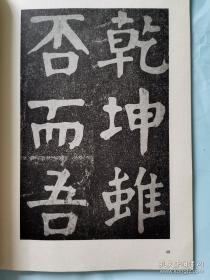 乾坤雖
否而吾